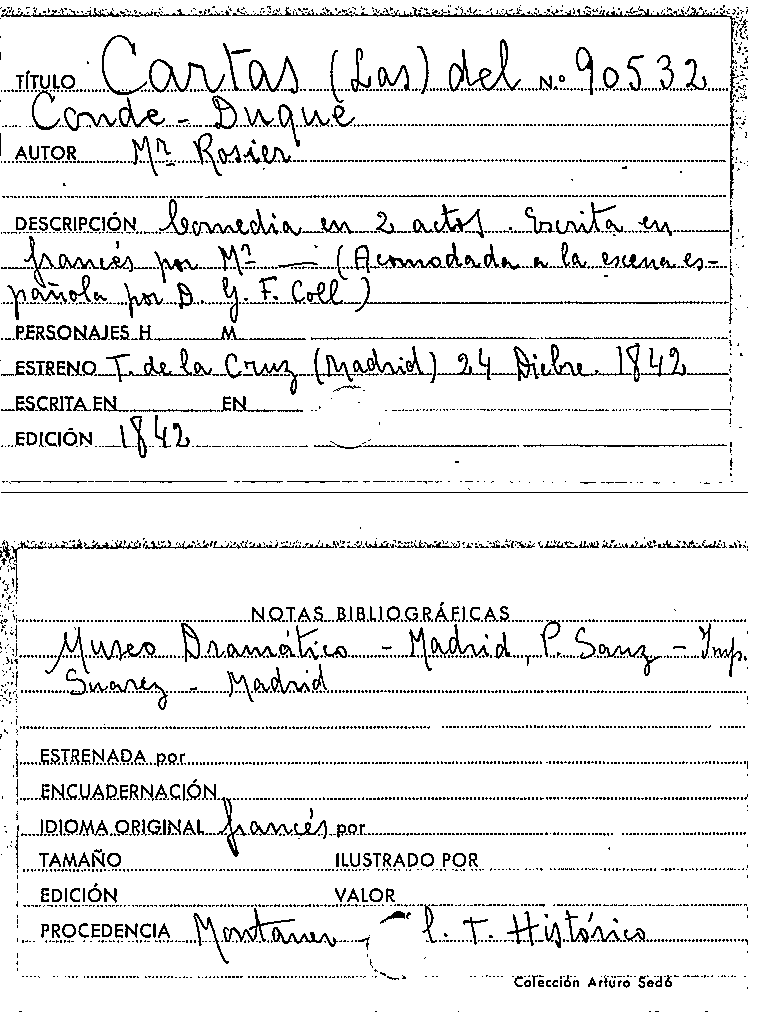 TÍTULO Cartas (Las) del N.º 90532
Conde-Duque
AUTOR Mr. Rosier
DESCRIPCIÓN Comedia en 2 actos. Escrita en
francés por Mr. — (Acomodada a la escena es-
pañola por D. G. F. Coll)
PERSONAJES H M
ESTRENO T. de la Cruz (Madrid) 24 Dicbre. 1842
ESCRITA EN EN
EDICIÓN 1842
NOTAS BIBLIOGRÁFICAS
Museo Dramático - Madrid, P. Sanz - Imp.
Suarez - Madrid
ESTRENADA por
ENCUADERNACIÓN
IDIOMA ORIGINAL francés por
TAMAÑO ILUSTRADO POR
EDICIÓN VALOR
PROCEDENCIA Montaner T. Histórico
Colección Arturo Sedó